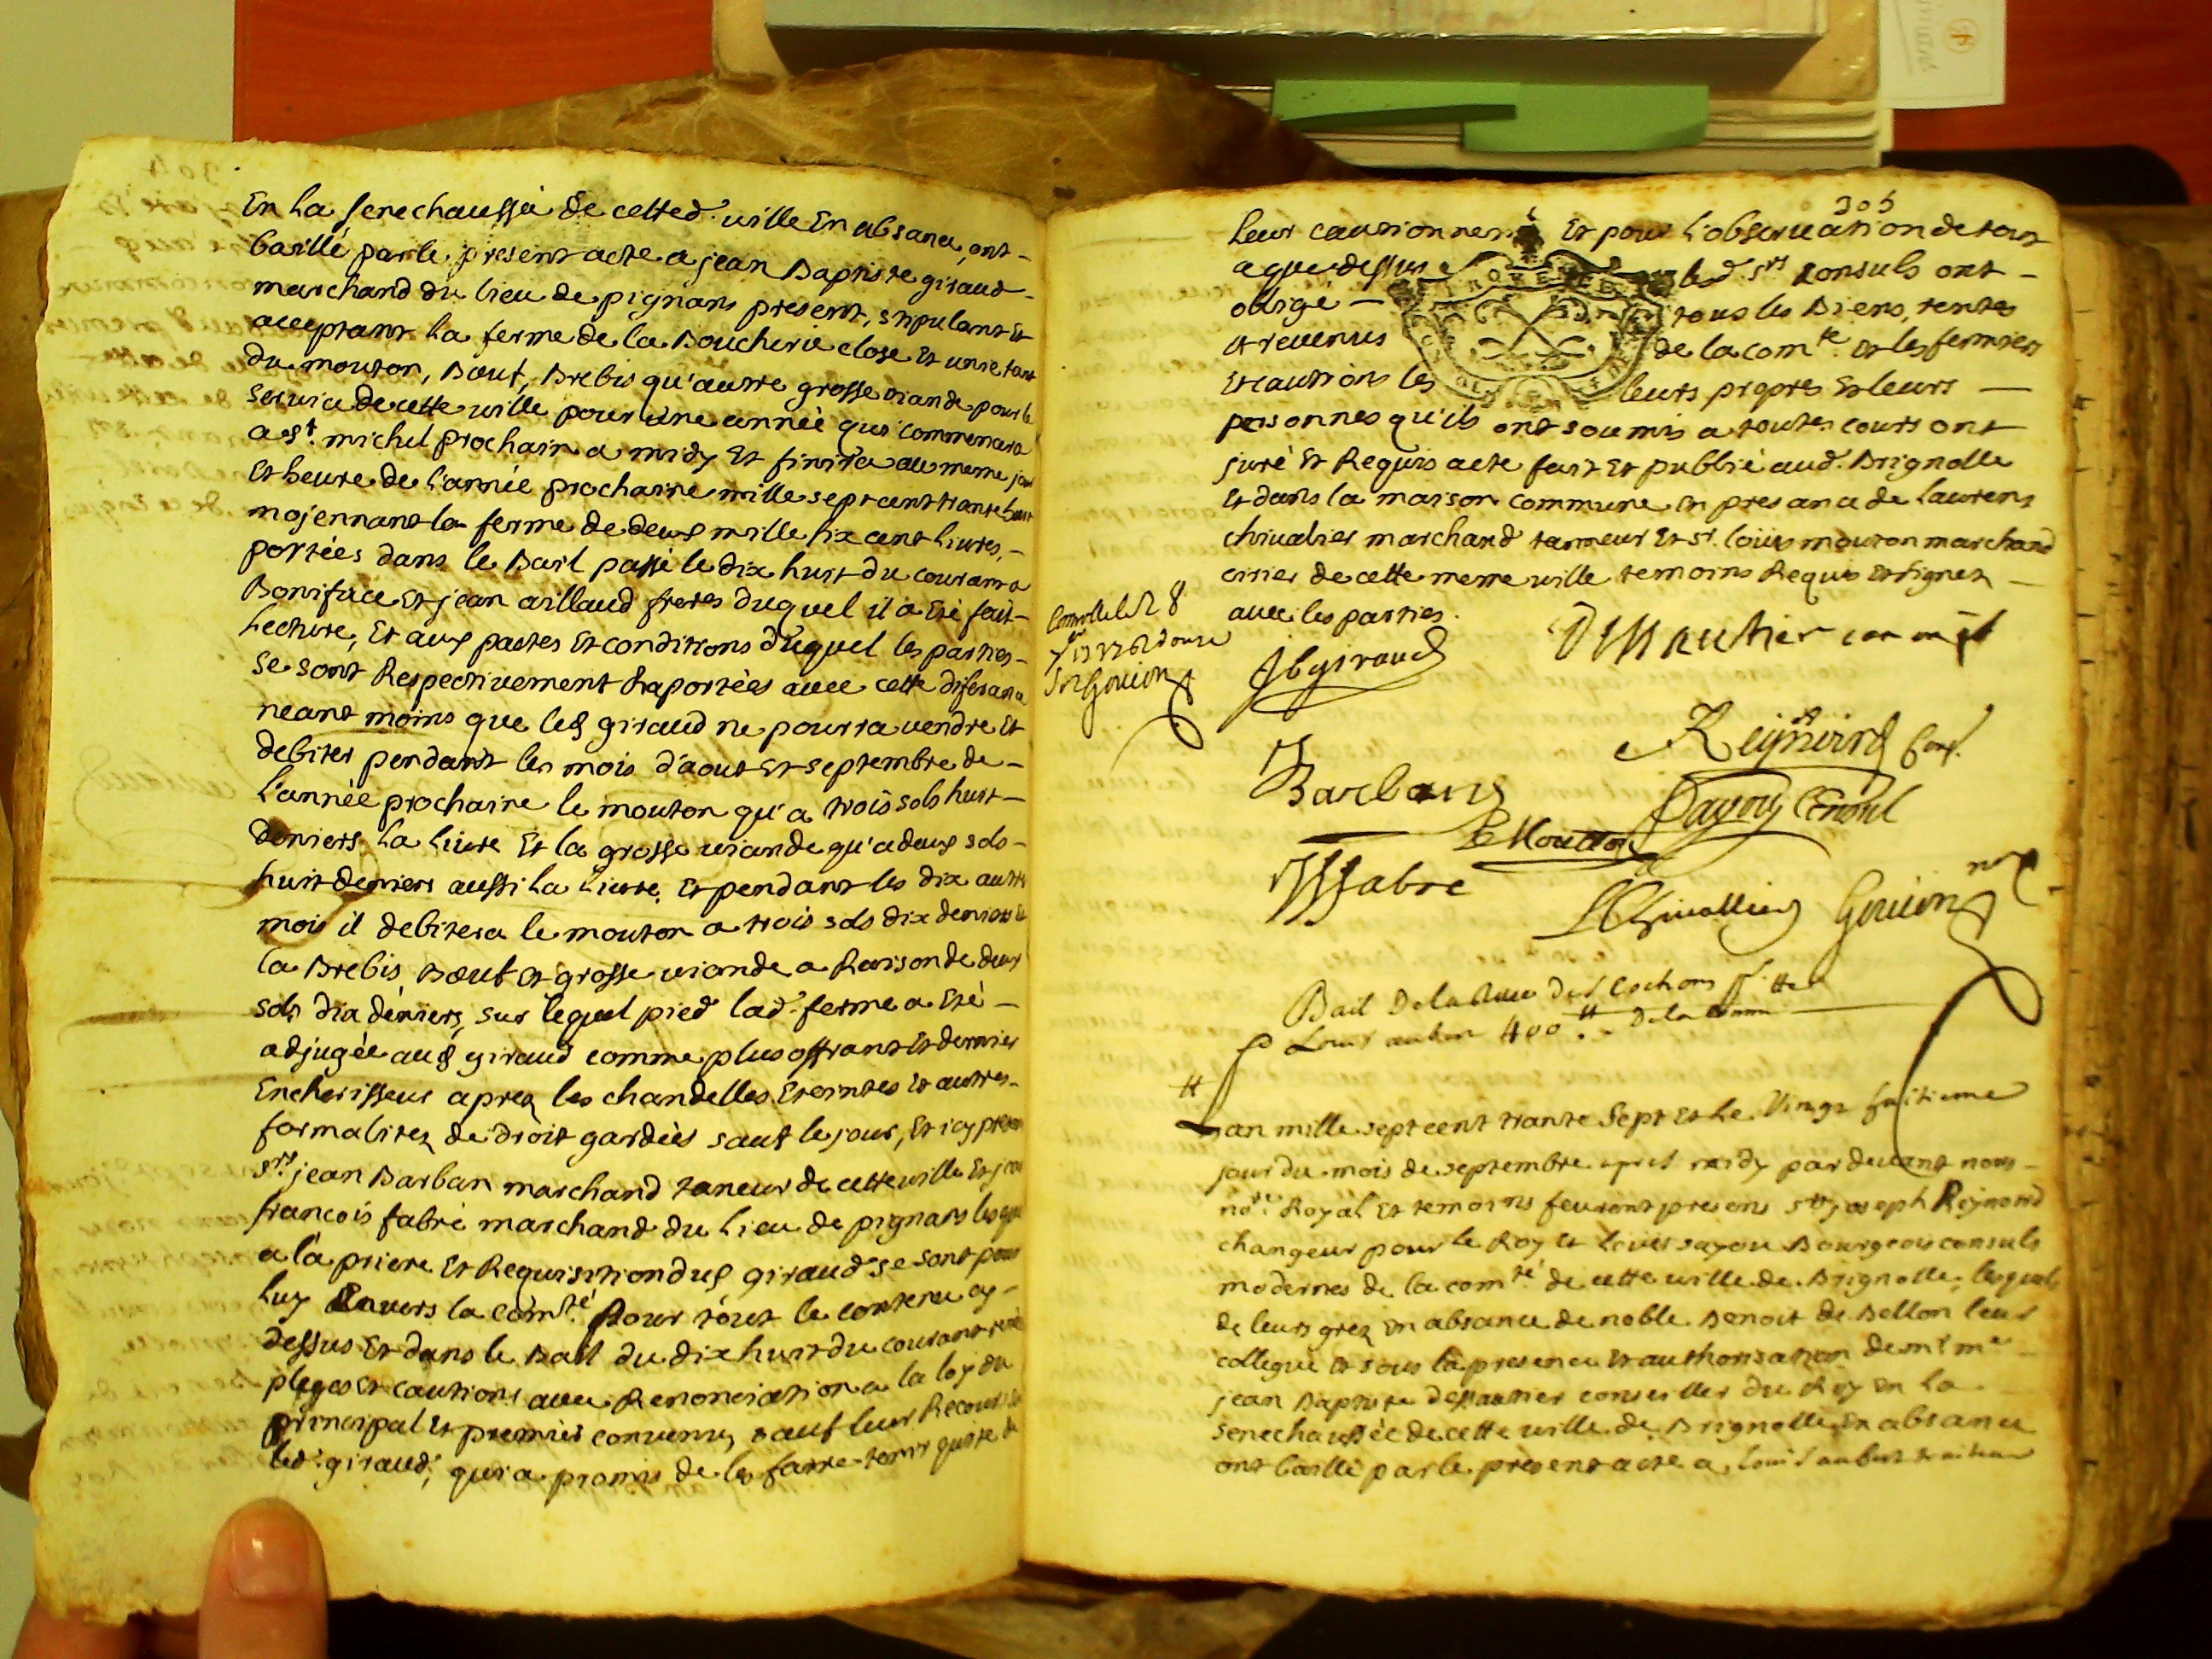 En la senechaussée de cette d. ville En absance, ont
baillé par le present acte a jean Baptiste giraud
marchand du lieu de pignans present, stipulant Et
acceptant la ferme de la Boucherie close Et unie tant
du mouton, Bœuf, Brebis qu'autre grosse viande pour le
service de cette ville pour une année qui commencera
a St. michel prochain a midy Et finira au meme jour
Et heure de l'année prochaine mille sept cent trante huit
mojennant la ferme de deux mille six cent livres,
portées dans le Bail passé le dix huit du courant a
Boniface Et jean aillaud freres duquel il a Eté fait
Lecture, Et aux pactes Et conditions duquel les parties
se sont Respectivement Raportées avec cette diferance
neant moins que led giraud ne pourra vendre Et
debiter pendant les mois d'aout Et septembre de
l'année prochaine le mouton qu'a trois sols huit
deniers La livre Et la grosse viande qu'a deux sols
huit deniers aussi la Livre, Et pendant les dix autres
mois il debitera le mouton a trois sols dix deniers Et
la Brebis, Bœuf Et grosse viande a Raison de deux
sols dix deniers, sur lequel pied lad. ferme a Eté
adjugée aud giraud comme plus offrant Et dernier
Encherisseur aprez les chandelles Eteintes Et autres
formalitez de droit gardées sauf le jour, Et icy present
Srs. jean Barban marchand taneur de cette ville Et jean
francois fabre marchand du Lieu de pignans lesquels
a la priere Et Requisition dud giraud se sont pour
Luy Envers la comté. Pour tout le contenu cy
dessus Et dans le Bail du dix huit du courant rendus
pleges Et cautions avec Renonciation a la loy du
principal Et premier convenu, sauf leur Recours
led. giraud, qui a promis de les faire tenir quitte de
305
leur cautionnement Et pour l'observation de tout
ce que dessus led. Srs Consuls ont
obligé tous les Biens, rentes
et revenus de la comte. Et les fermiers
Et cautions les leurs propres Et leurs
personnes qu'ils ont soumis a toutes cours ont
juré Et Requis acte fait Et publié aud. Brignolle
Et dans la maison commune En presance de Laurens
chivalier marchand tanneur Et Sr. Loüis mouton marchand
cirier de cette meme ville temoins Requis Et signez
avec les parties.
Jbgiraud
Barbans
Reynoird Cons.
LMouton
Sayou Consul
JFfabre
LChivallier
Gouion nore
Bail De la des Cochons
Louis aubert 400 tt De la comm
Lan mille sept cent trante Sept Et Le Vingt huitieme
jour du mois de septembre apres midy par devant nous
nore. Royal Et temoins feurent presens Srs joseph Reynoird
changeur pour le Roy Et Louis sayou Bourgeois consuls
modernes de la comté de cette ville de Brignolle, lesquels
de leurs grez En absance de noble Benoit de Bellon leur
collegue Et sous la presence Et authorisation de mr me
jean Baptiste dessautier conseiller du Roy En la
senechaussée de cette ville de Brignolle En absance
ont baillé par le present acte a Louis aubert